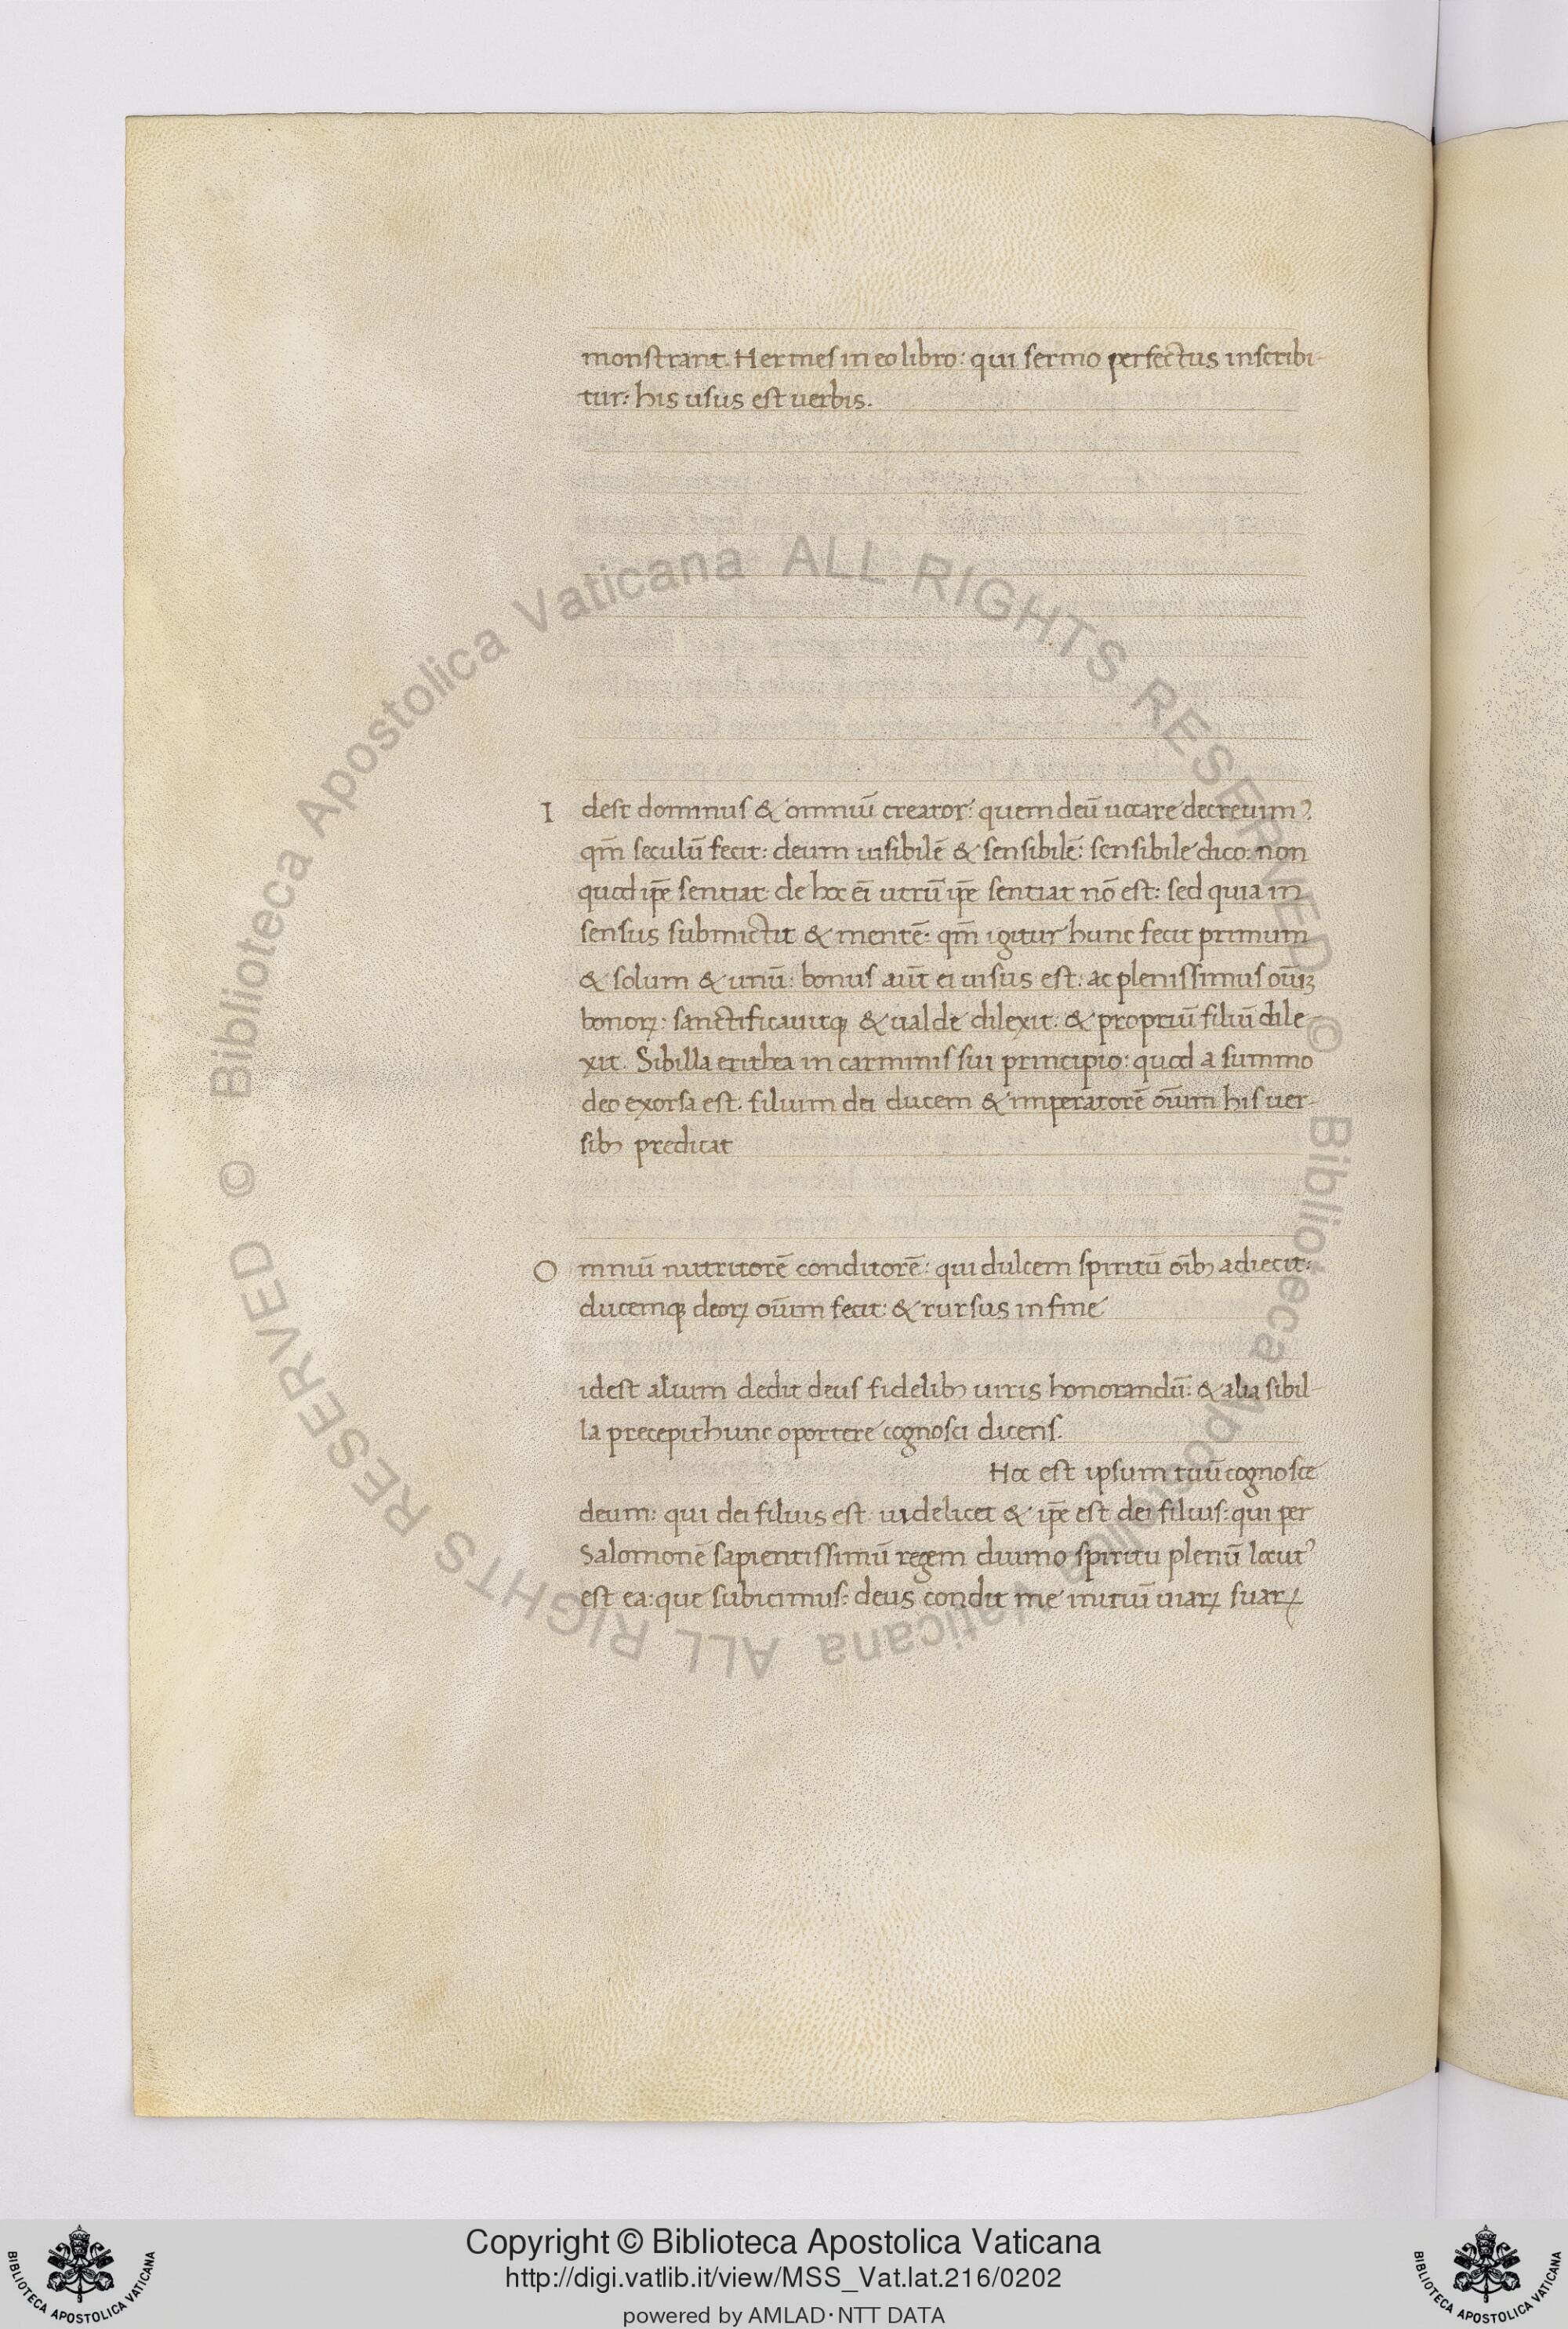 monstrant. Hermes in eo libro: qui sermo perfectus inscribi-
tur: his usus est uerbis.
I dest dominus & omniū creator: quem deū uocare decreuim᾽.
qm̄ seculū fecit: deum uisibilē & sensibilē: sensibile dico: non
quod ip̄e sentiat: de hoc ei̅ utrū ip̄e sentiat nō est: sed quia in
sensus submictit & mentē: qm̄ igitur hunc fecit primum
& solum & unū: bonus aūt ei uisus est: ac plenissimus oīuꝫ
bonoꝝ: sanctificauitqꝫ & ualde dilexit: & propriū filiū dile-
xit. Sibilla erithea in carminis sui principio: quod a summo
deo exorsa est. filium dei ducem & imperatorē oīum his uer-
sibꝫ predicat
O mniū nutritorē conditorē: qui dulcem spiritū oībꝫ adiecit:
ducemqꝫ deoꝝ oīum fecit: & rursus in fine
idest alium dedit deus fidelibꝫ uiris honorandū: & alia sibil-
la precepit hunc oportere cognosci dicens.
Hoc est ipsum tuū cognosce
deum: qui dei filius est: uidelicet & ip̄e est dei filius: qui per
Salomonē sapientissimū regem diuino spiritu plenū locut᾽
est ea: que subicimus: deus condit me initiū uiaꝝ suaꝝ
© Biblioteca Apostolica Vaticana ALL RIGHTS RESERVED
© Biblioteca Apostolica Vaticana ALL RIGHTS RESERVED
BIBLIOTECA APOSTOLICA VATICANA
Copyright © Biblioteca Apostolica Vaticana
http://digi.vatlib.it/view/MSS_Vat.lat.216/0202
powered by AMLAD·NTT DATA
BIBLIOTECA APOSTOLICA VATICANA